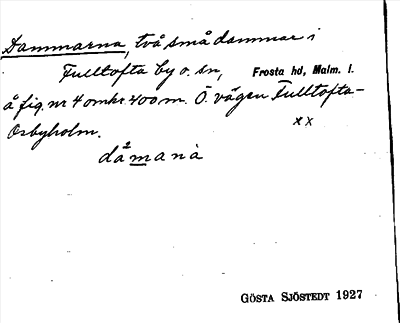 Dammarna, två små dammar i
Fulltofta by o. sn, Frosta hd, Malm. l.
å fig. nr 4 omkr 400 m. Ö. vägen Fulltofta-
Osbyholm. x x
då²manà
GÖSTA SJÖSTEDT 1927